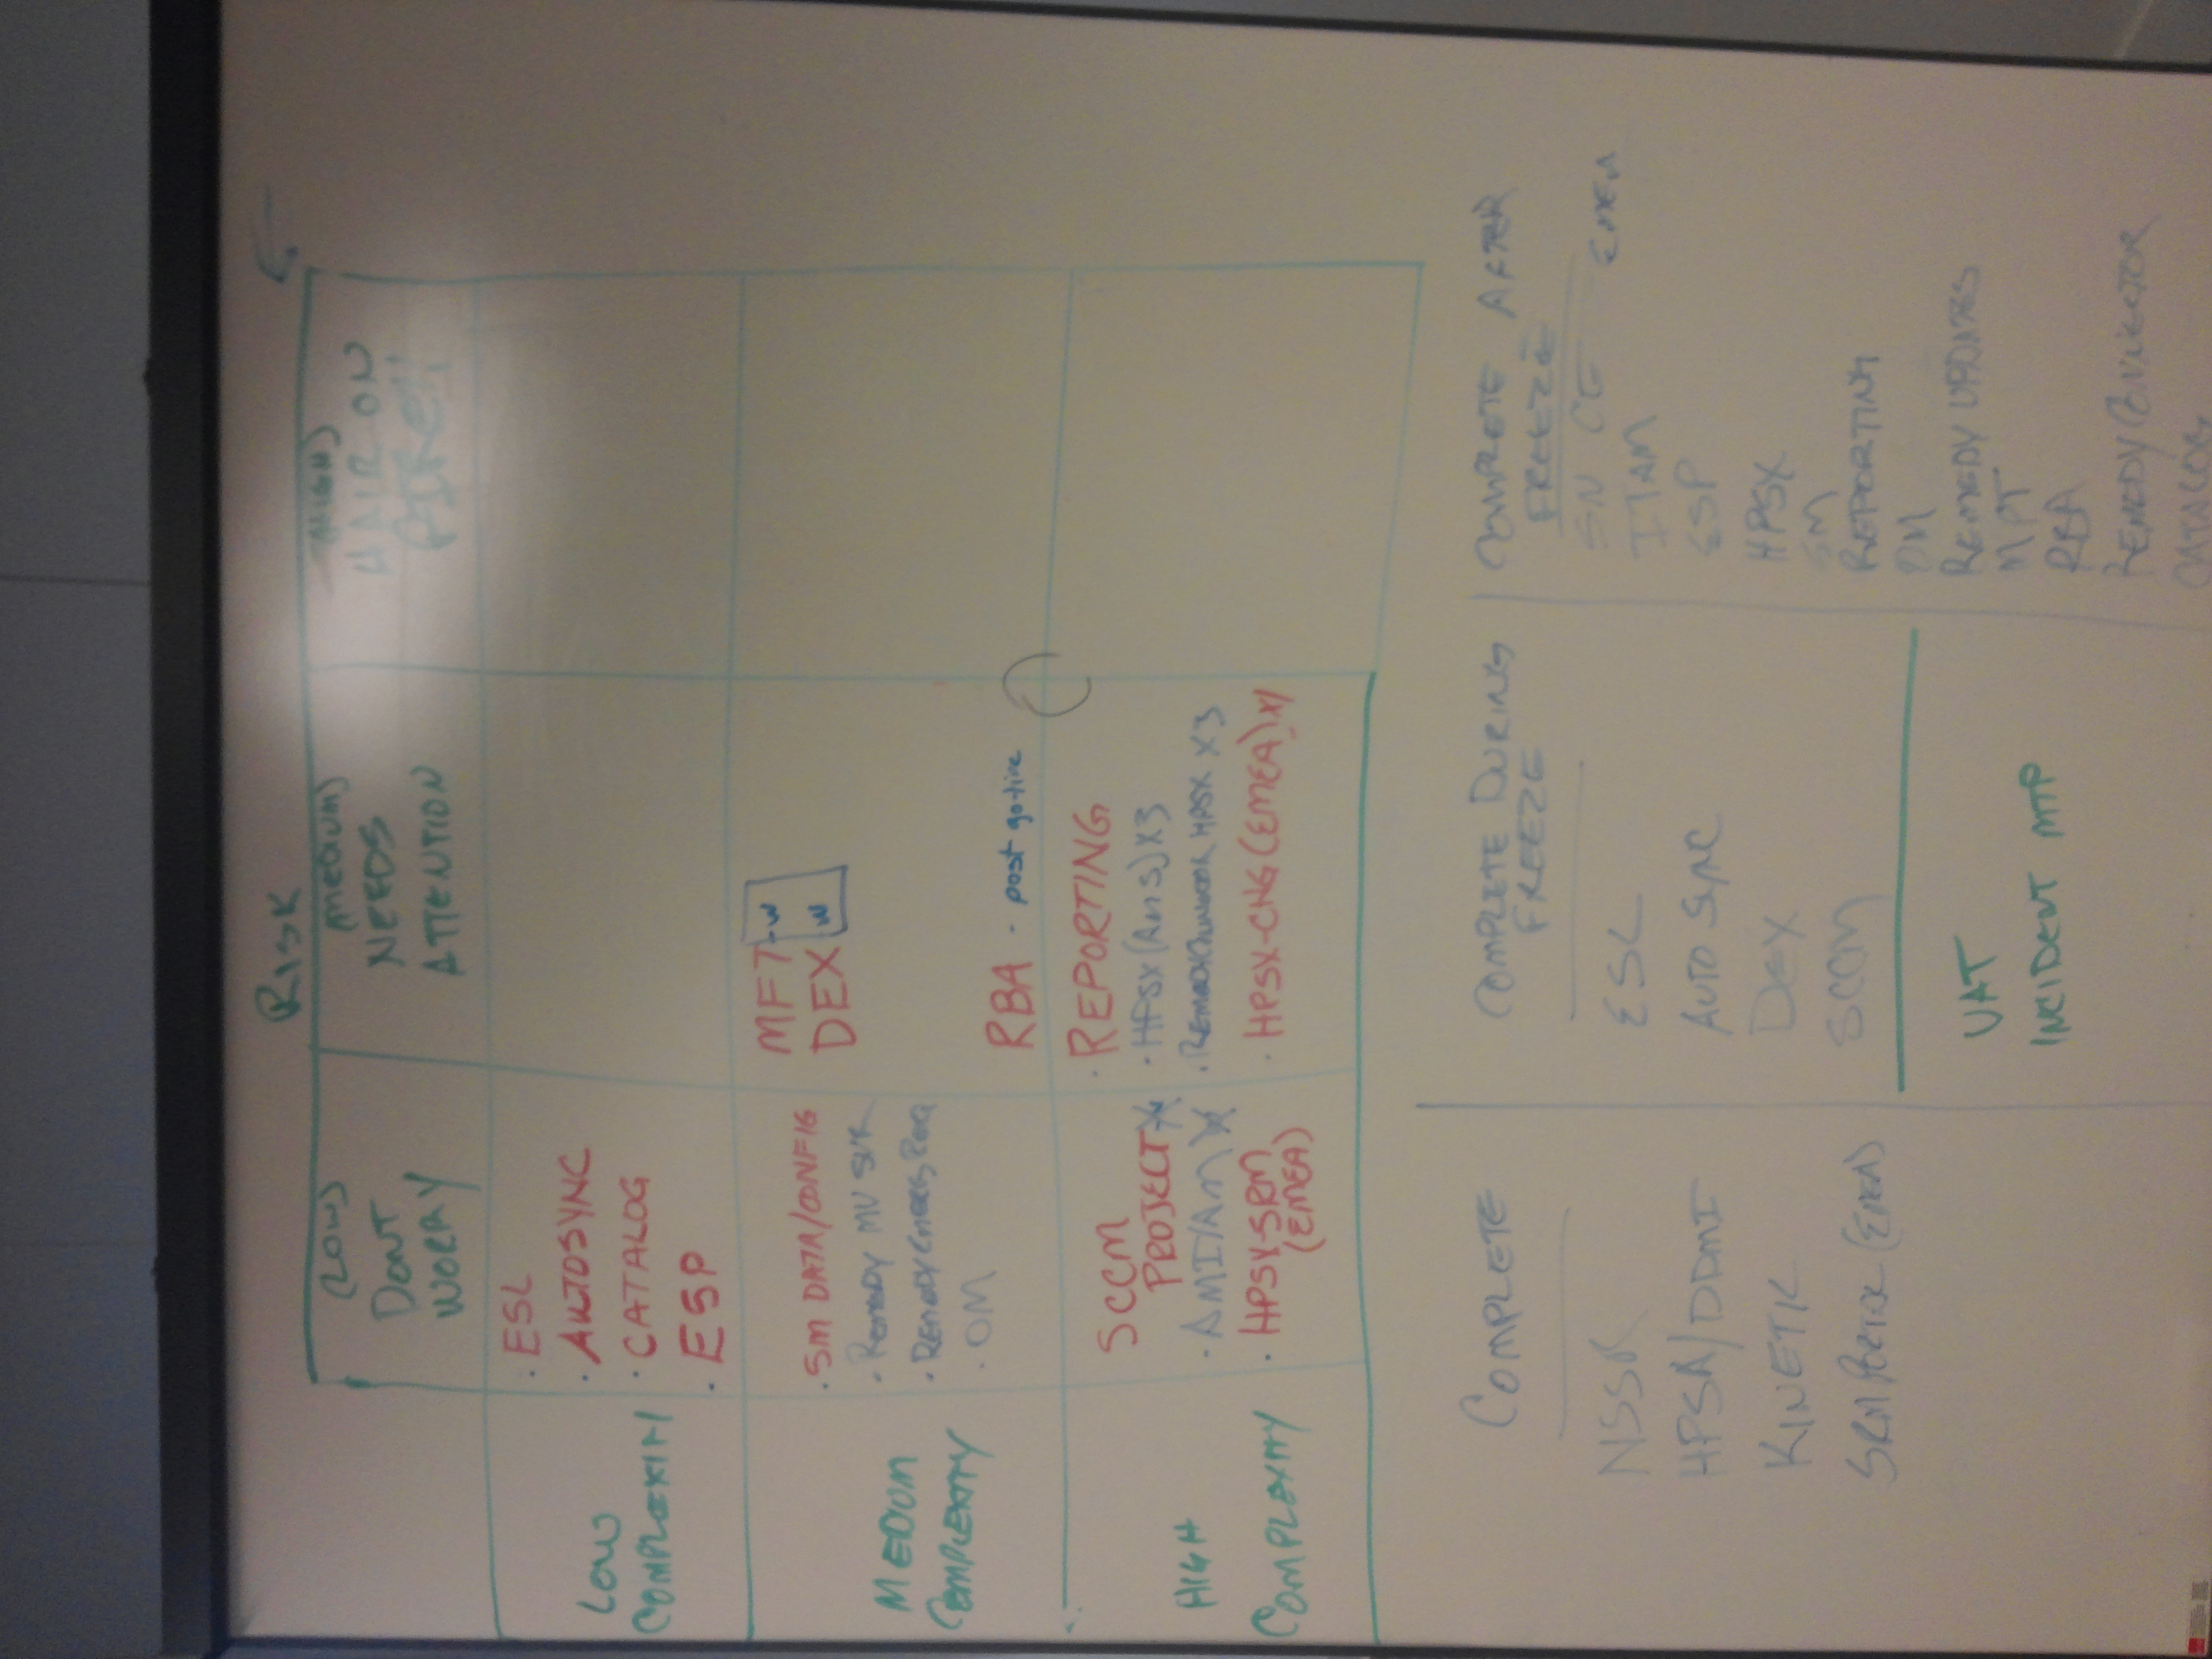 RISK
(LOW)
DONT
WORRY
(MEDIUM)
NEEDS
ATTENTION
(HIGH)
HAIR ON
FIRE!
LOW
COMPLEXITY
· ESL
· AUTOSYNC
· CATALOG
· ESP
MEDIUM
COMPLEXITY
· SM DATA/CONFIG
· REMEDY MV SVR
· REMEDY
· OM
MFT-W
DEX W
RBA - post go-live
HIGH
COMPLEXITY
SCCM
PROJECT
· AMI/AM
· HPSX-SRM
(EMEA)
· REPORTING
· HPSX (AMS) X3
· HPSX X3
· HPSX-CNG (EMEA)
COMPLETE
NSSR
HPSA/DDMI
KINETIC
SRM PORTAL (EMEA)
COMPLETE DURING
FREEZE
ESL
AUTO SYNC
DEX
SCCM
UAT
INCIDENT MTP
COMPLETE AFTER
FREEZE
SN CE EMEA
ITAM
ESP
HPSX
SM
REPORTING
REMEDY UPDATES
RBA
REMEDY CONNECTOR
CATALOG